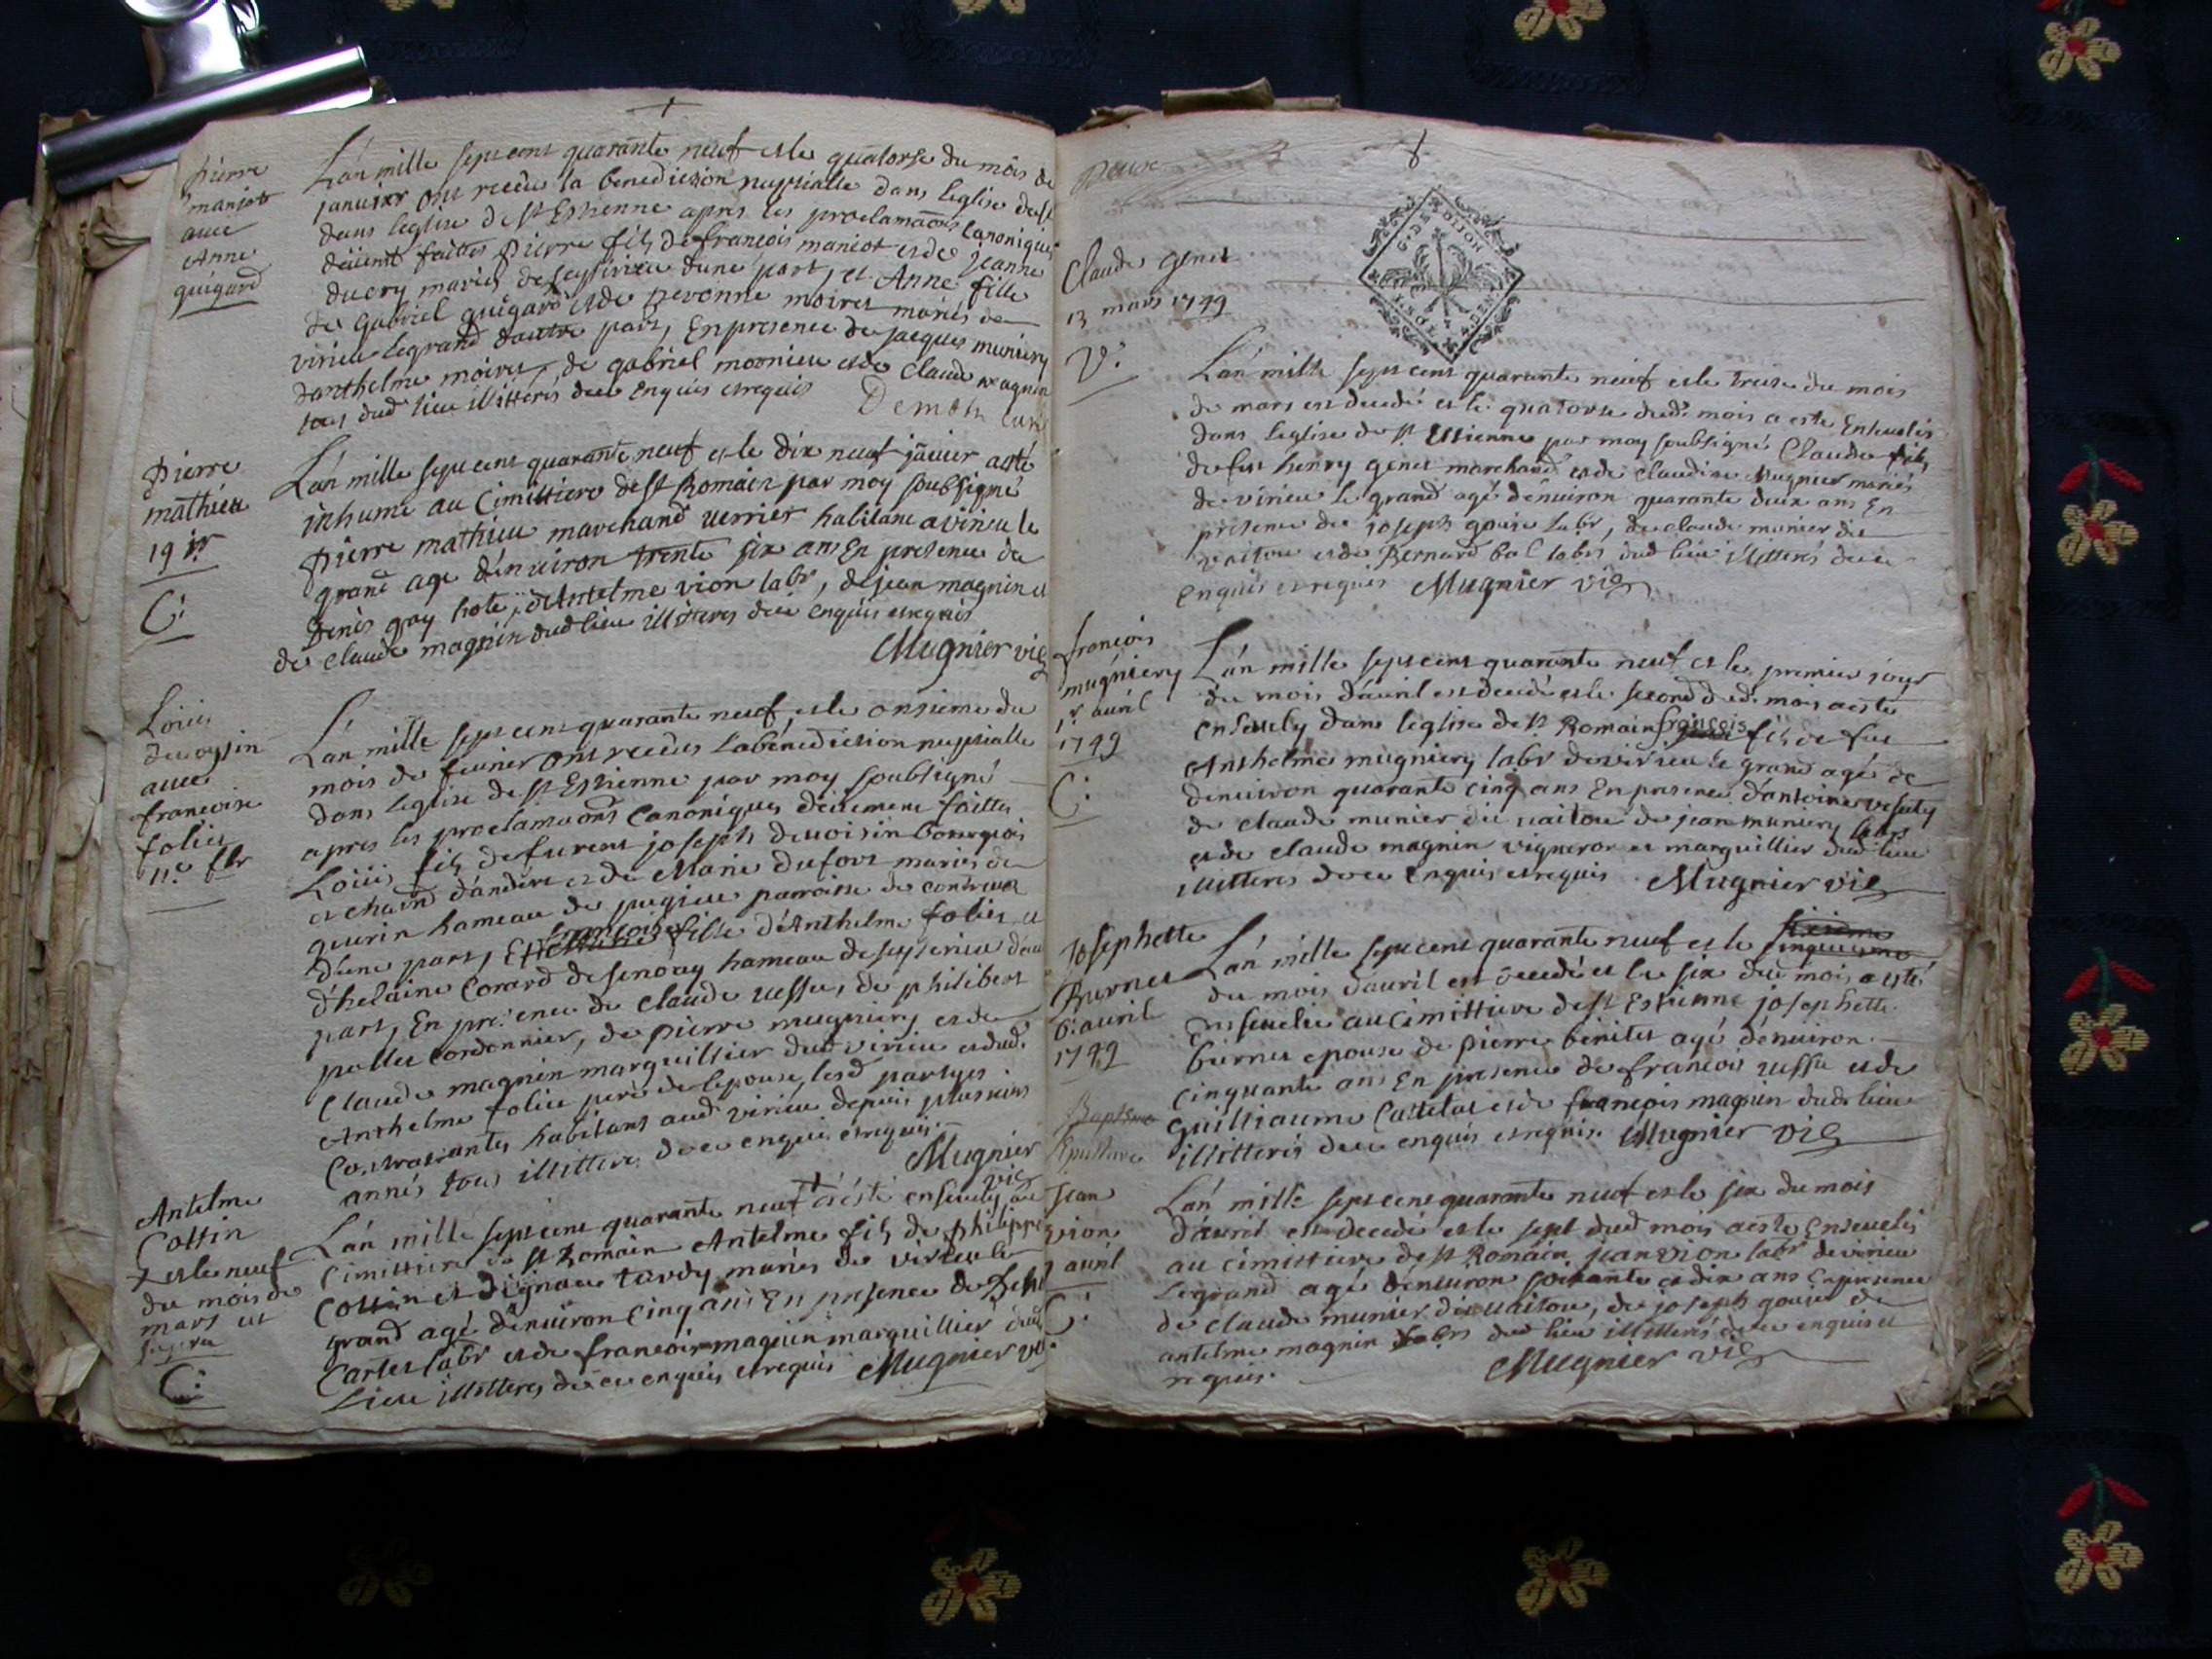 pierre
maniot
avec
Anne
guigard
L'an mille sept cent quarante neuf et le quatorse du mois de
januier ont receus la benediction nuptialle dans leglise de st
dans leglise de st Estienne apres les proclamaons canoniques
deüemt faittes pierre fils de francois maniot et de jeanne
ducry mariés de seyssirieu dune part, et Anne fille
de gabriel guigard et de pevonne moiret mariés de
virieu legrand dautre part, En presence de jacques muniery
danthelme moiret, de gabriel monnieu et de claude magnin
tous dud lieu illitterés de ce enquis et requis Demoli curé
Pierre
mathieu
19 jr
C:
L'an mille sept cent quarante neuf et le dix neuf jäuier a esté
inhumé au cimittiere de st Romain par moy soubsigné
pierre mathieu marchand verrier habitant a virieu le
grand age d'enuiron trente six ans En presence de
Denis gay hote, d'Antelme vion labr, de jean magnin et
de claude magnin dud lieu illitteres de ce enquis et requis
Mugnier vic
Loüis
deuoysin
auec
francoise
folliet
11e fbr
L'an mille sept cent quarante neuf, et le onsieme du
mois de feurier ont receus la bénediction nuptialle
dans leglise de st Estienne par moy soubsigné
apres les proclamaons canoniques deüement faittes
Loüis fils de furent joseph deuoisin bourgeois
et chatnd d'andert et de Marie dufour mariés de
guerin hameau de pugieu parroisse de contreuoz
d'une part, Et francoise fille d'Anthelme foliet et
d'helaine Corard de senoay hameau de seyssirieu dautre
part, En presence de claude vessu, de philibert
pollet cordonnier, de pierre mugniery et de
Claude magnin marguillier dud virieu et dud.
Anthelme foliet pere de lepouse, lesd partyes
Contractantes habitans aud virieu depuis plusieurs
annés tous illitteres de ce enquis et requis.
Mugnier
vic
Antelme
Cottin
+ et le neuf
du mois de
mars
C:
L'an mille sept cent quarante neuf + a esté enseuely au
Cimittiere de st Romain Antelme fils de philippe
Cottin et dignace tardy mariés de virieu le
grand agé denuiron cinq ans En presence de
Cartet labr et de francois magnin marguillier dud
Lieu illitteres de ce enquis et requis Mugnier vic
Deux
G. DE DIJON
4. DEN
1. SOL
Claude genet
13 mars 1749
V:
L'an mille sept cent quarante neuf et le treise du mois
de mars est decedé et le quatorse dud. mois a esté Enseuelis
dans leglise de st Estienne par moy soubsigné Claude fils
de fut henry genet marchand et de claudine Mugnier mariés
de virieu le grand agé denuiron quarante deux ans En
presence de joseph gouje labr, de claude munier dit
vaitou et de Bernard bal labrs dud lieu illitterés de ce
enquis et requis Mugnier vic
francois
mugniery
1r auril
1749
C:
L'an mille sept cent quarante neuf et le premier jour
du mois dauril est decedé et le second dud. mois a esté
enseuely dans leglise de st Romain francois fils de fut
Anthelme mugniery labr de virieu le grand agé de
denuiron quarante cinq ans En presence d'antoine
de claude munier dit vaitou de jean muniery labrs
et de claude magnin vigneron et marguillier dud lieu
illitteres de ce enquis et requis Mugnier vic
Josephette
Burnet
6: auril
1749
L'an mille sept cent quarante neuf et le sixieme cinquieme
du mois dauril est decedé et le six dud mois a esté
Enseuelie au cimittiere de st Estienne josephette
burnet epouse de pierre benitet agé denuiron
cinquante ans En presence de francois vessu et de
guilliaume Castelat et de francois magnin dud lieu
illitterés de ce enquis et requis. Mugnier vic
Jean
vion
7 auril
C:
L'an mille sept cent quarante neuf et le six du mois
dauril est decedé et le sept dud mois a esté Enseuelis
au cimittiere de st Romain jean vion labr de virieu
Legrand agé denuiron soixante et dix ans En presence
de claude munier dit vaitou, de joseph gouje de
antelme magnin labrs dud lieu illitterés de ce enquis et
requis. Mugnier vic